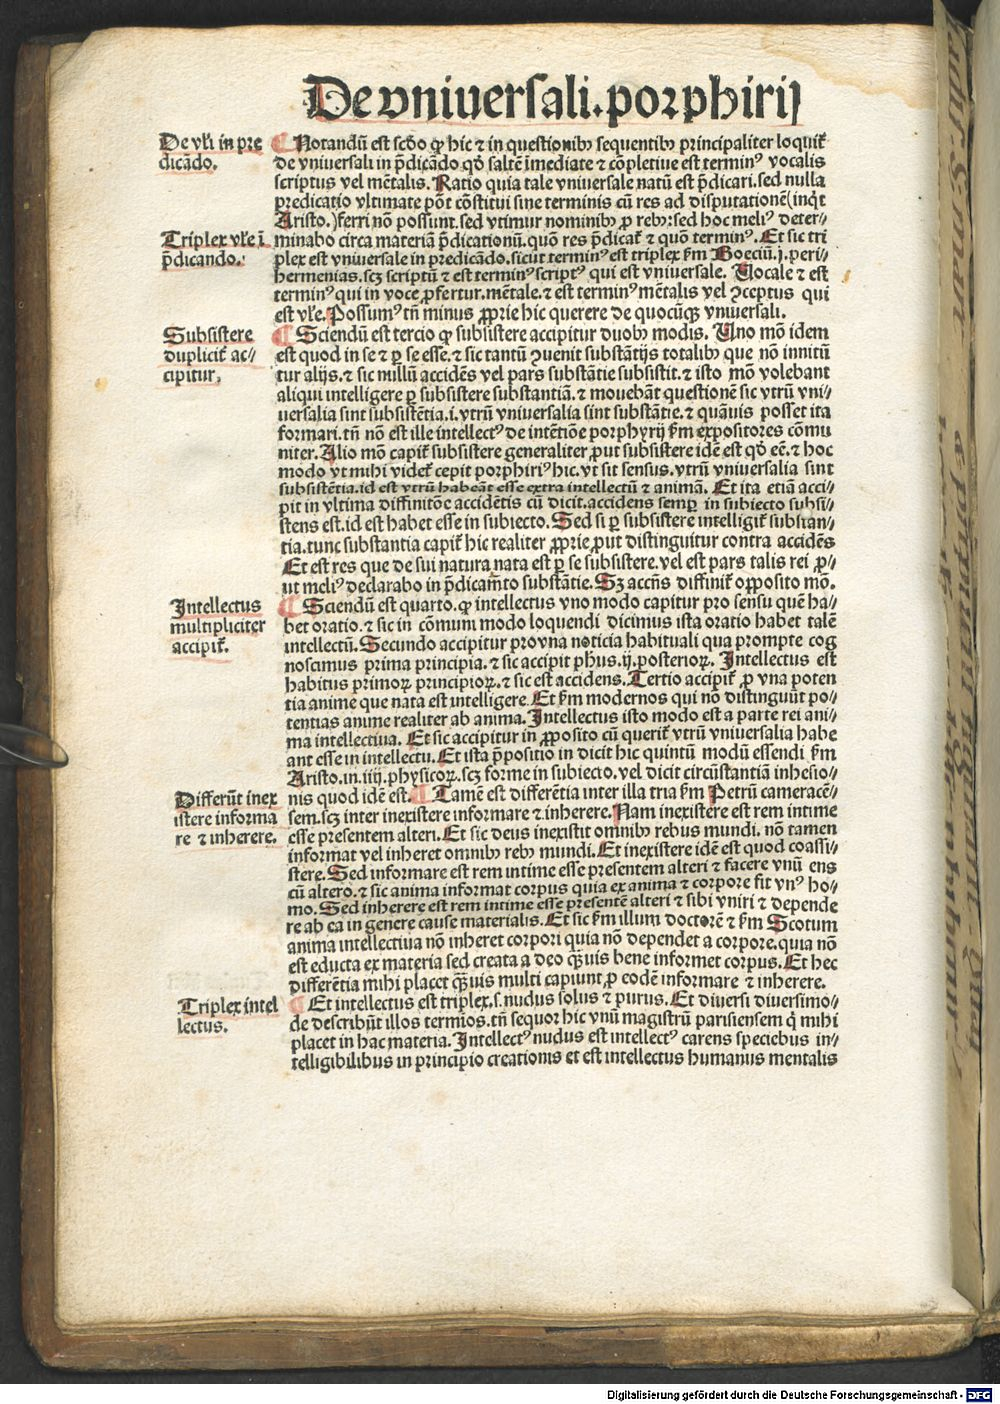 De vniuersali. porphirij
De vl'i in pre
dicādo.
¶ Notandū est scd̄o ꝙ hic ⁊ in questionibꝰ sequentibꝰ principaliter loquit᷑
de vniuersali in p̄dicādo qd̓ saltē īmediate ⁊ cōpletiue est terminꝰ vocalis
scriptus vel mētalis. Ratio quia tale vniuersale natū est p̄dicari. sed nulla
predicatio vltimate pōt cōstitui sine terminis cū res ad disputationē (inqt
Aristo.) ferri nō possunt. sed vtimur nominibꝰ ꝓ rebꝰ: sed hoc meliꝰ deter⸗
Triplex vl'e ī
p̄dicando.
minabo circa materiā p̄dicationū. quō res p̄dicat᷑ ⁊ quō terminꝰ. Et sic tri
plex est vniuersale in predicādo. sicut terminꝰ est triplex ẜm Boeciū. j. peri⸗
hermenias. scꝫ scriptū ⁊ est terminꝰ scriptꝰ qui est vniuersale. Vocale ⁊ est
terminꝰ qui in voce ꝓfertur. mētale. ⁊ est terminꝰ mētalis vel ꝯceptus qui
est vl'e. Possumꝰ tn̄ minus ꝓprie hic querere de quocūqꝫ vniuersali.
Subsistere
duplicit᷑ ac⸗
cipitur.
¶ Sciendū est tercio ꝙ subsistere accipitur duobꝰ modis. Uno mō idem
est quod in se ⁊ ꝑ se esse. ⁊ sic tantū ꝯuenit substātijs totalibꝰ que nō innitū
tur alijs. ⁊ sic nullū accidēs vel pars substātie subsistit. ⁊ isto mō volebant
aliqui intelligere ꝑ subsistere substantiā. ⁊ mouebāt questionē sic vtrū vni⸗
uersalia sint subsistētia. i. vtrū vniuersalia sint substātie. ⁊ quāuis posset ita
formari. tn̄ nō est ille intellectꝰ de intētiōe porphyrij ẜm expositores cōmu
niter. Alio mō capit᷑ subsistere generaliter ꝓut subsistere idē est qd̓ eē. ⁊ hoc
modo vt mihi videt᷑ cepit porphiriꝰ hic. vt sit sensus. vtrū vniuersalia sint
subsistētia. id est vtrū habeāt esse extra intellectū ⁊ animā. Et ita etiā acci⸗
pit in vltima diffinitōe accidētis cū dicit. accidens semꝑ in subiecto subsi⸗
stens est. id est habet esse in subiecto. Sed si ꝑ subsistere intelligit᷑ substan⸗
tia. tunc substantia capit᷑ hic realiter ꝓprie ꝓut distinguitur contra accidēs
Et est res que de sui natura nata est ꝑ se subsistere. vel est pars talis rei ꝓ⸗
ut meliꝰ declarabo in p̄dicam̄to substātie. Sꝫ accn̄s diffinit᷑ opposito mō.
Intellectus
multipliciter
accipit᷑.
¶ Sciendū est quarto. ꝙ intellectus vno modo capitur pro sensu quē ha⸗
bet oratio. ⁊ sic in cōmuni modo loquendi dicimus ista oratio habet talē
intellectū. Secundo accipitur pro vna noticia habituali qua prompte cog
noscimus prima principia. ⁊ sic accipit phus. ij. posterioꝝ. Intellectus est
habitus primoꝝ principioꝝ. ⁊ sic est accidens. Tertio accipit᷑ ꝓ vna poten
tia anime que nata est intelligere. Et ẜm modernos qui nō distinguūt po⸗
tentias anime realiter ab anima. Intellectus isto modo est a parte rei ani⸗
ma intellectiua. Et sic accipitur in ꝓposito cū querit᷑ vtrū vniuersalia habe
ant esse in intellectu. Et ista p̄positio in dicit hic quintū modū essendi ẜm
Aristo. in. iiij. physicoꝝ. scꝫ forme in subiecto. vel dicit circūstantiā inhesio⸗
Differūt inex
istere informa
re ⁊ inherere.
nis quod idē est. ¶ Tamē est differētia inter illa tria ẜm Petrū cameracē⸗
sem. scꝫ inter inexistere informare ⁊ inherere. Nam inexistere est rem intime
esse presentem alteri. Et sic deus inexistit omnibꝰ rebus mundi. nō tamen
informat vel inheret omnibꝰ rebꝰ mundi. Et inexistere idē est quod coassi⸗
stere. Sed informare est rem intime esse presentem alteri ⁊ facere vnū ens
cū altero. ⁊ sic anima informat corpus quia ex anima ⁊ corpore fit vnꝰ ho⸗
mo. Sed inherere est rem intime esse presentē alteri ⁊ sibi vniri ⁊ depende
re ab ea in genere cause materialis. Et sic ẜm illum doctorē ⁊ ẜm Scotum
anima intellectiua nō inheret corpori quia nō dependet a corpore. quia nō
est educta ex materia sed creata a deo qᷓuis bene informet corpus. Et hec
differētia mihi placet qᷓuis multi capiunt ꝓ eodē informare ⁊ inherere.
Triplex intel
lectus.
¶ Et intellectus est triplex. s. nudus solus ⁊ purus. Et diuersi diuersimo⸗
de describūt illos termīos. tn̄ sequor hic vnū magistrū parisiensem q̇ mihi
placet in hac materia. Intellectꝰ nudus est intellectꝰ carens speciebus in⸗
telligibilibus in principio creationis et est intellectus humanus mentalis
Digitalisierung gefördert durch die Deutsche Forschungsgemeinschaft - DFG